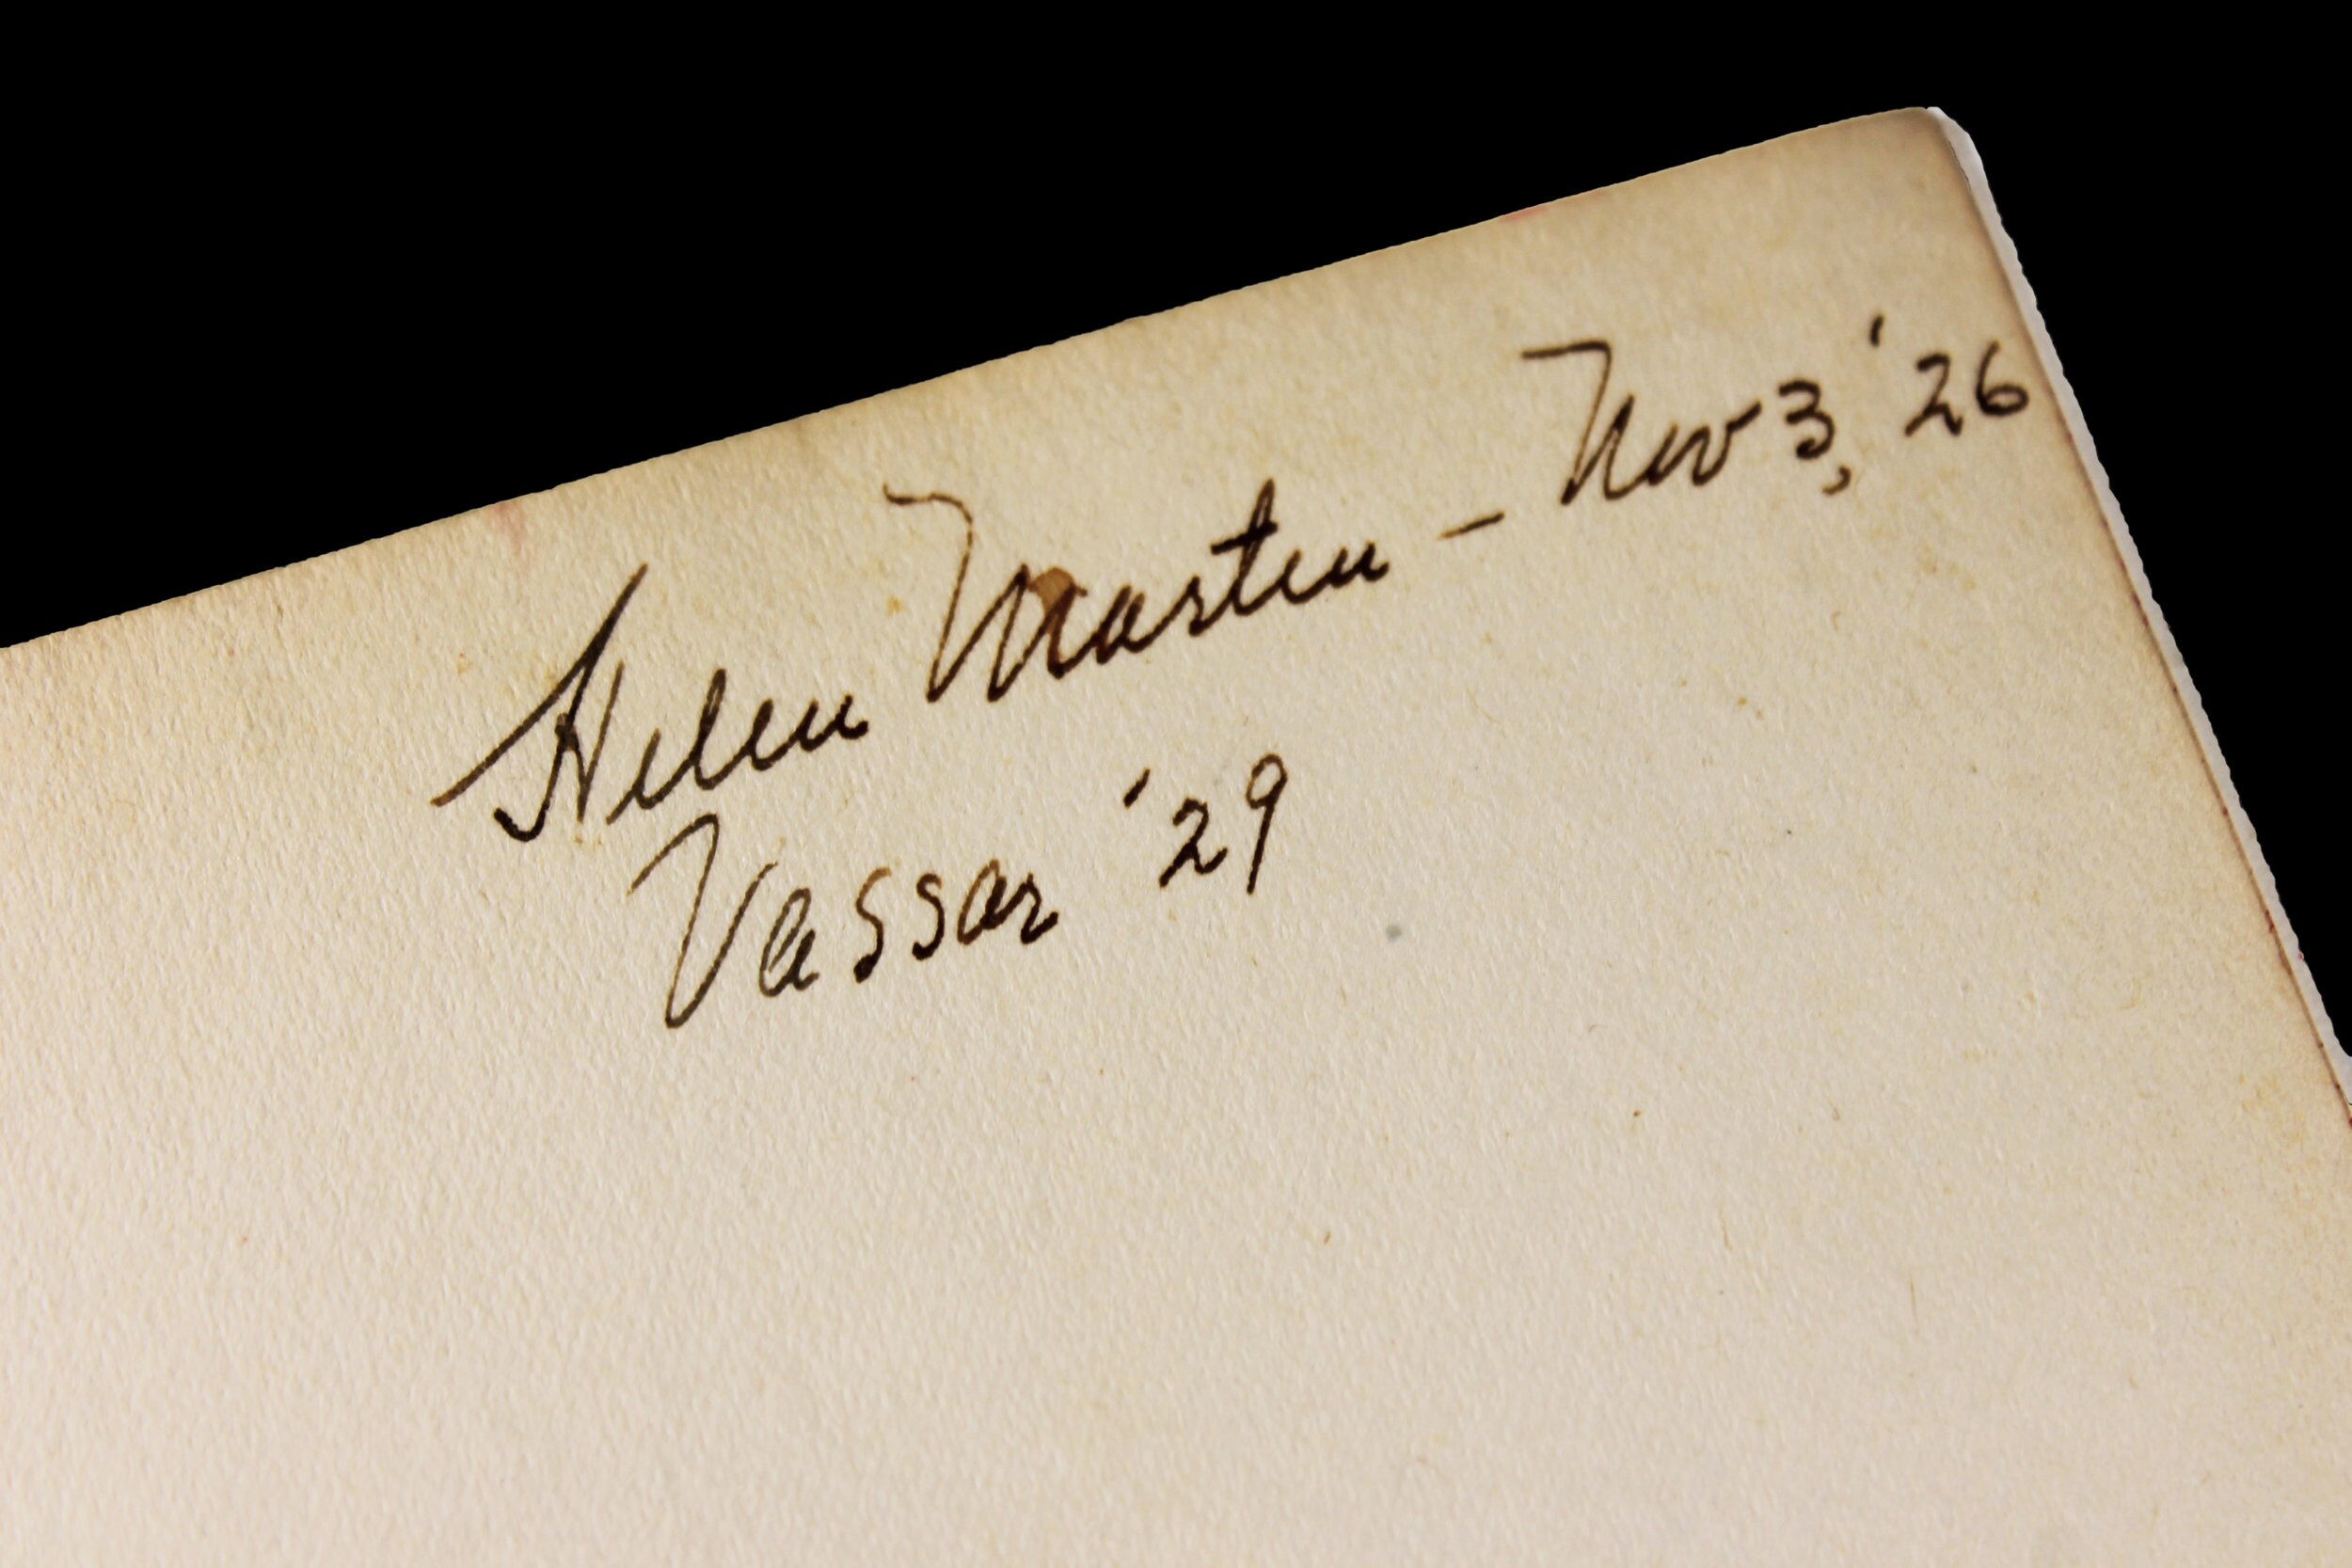 Helen Masten - Nov 3, '26
Vassar '29